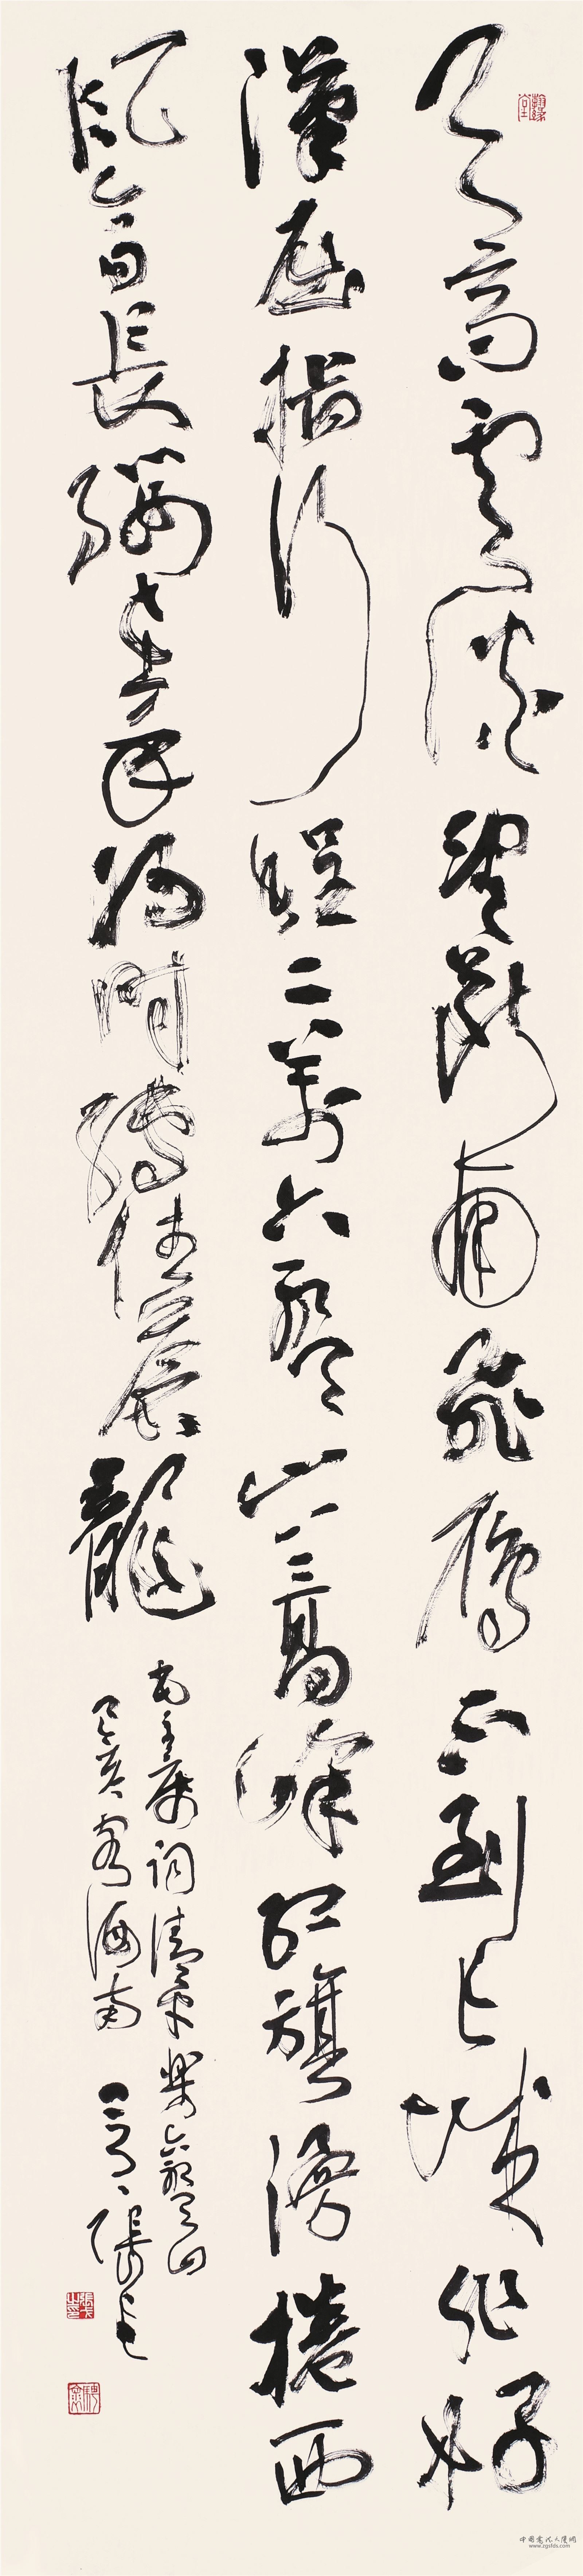 天高雲淡望斷南飛雁不到長城非好
漢屈指行程二萬六盤山上高峰紅旗漫捲西
風今日長纓在手何時縛住蒼龍
毛主席詞清平樂六盤山
己亥客海南 張
www.zgsfds.com